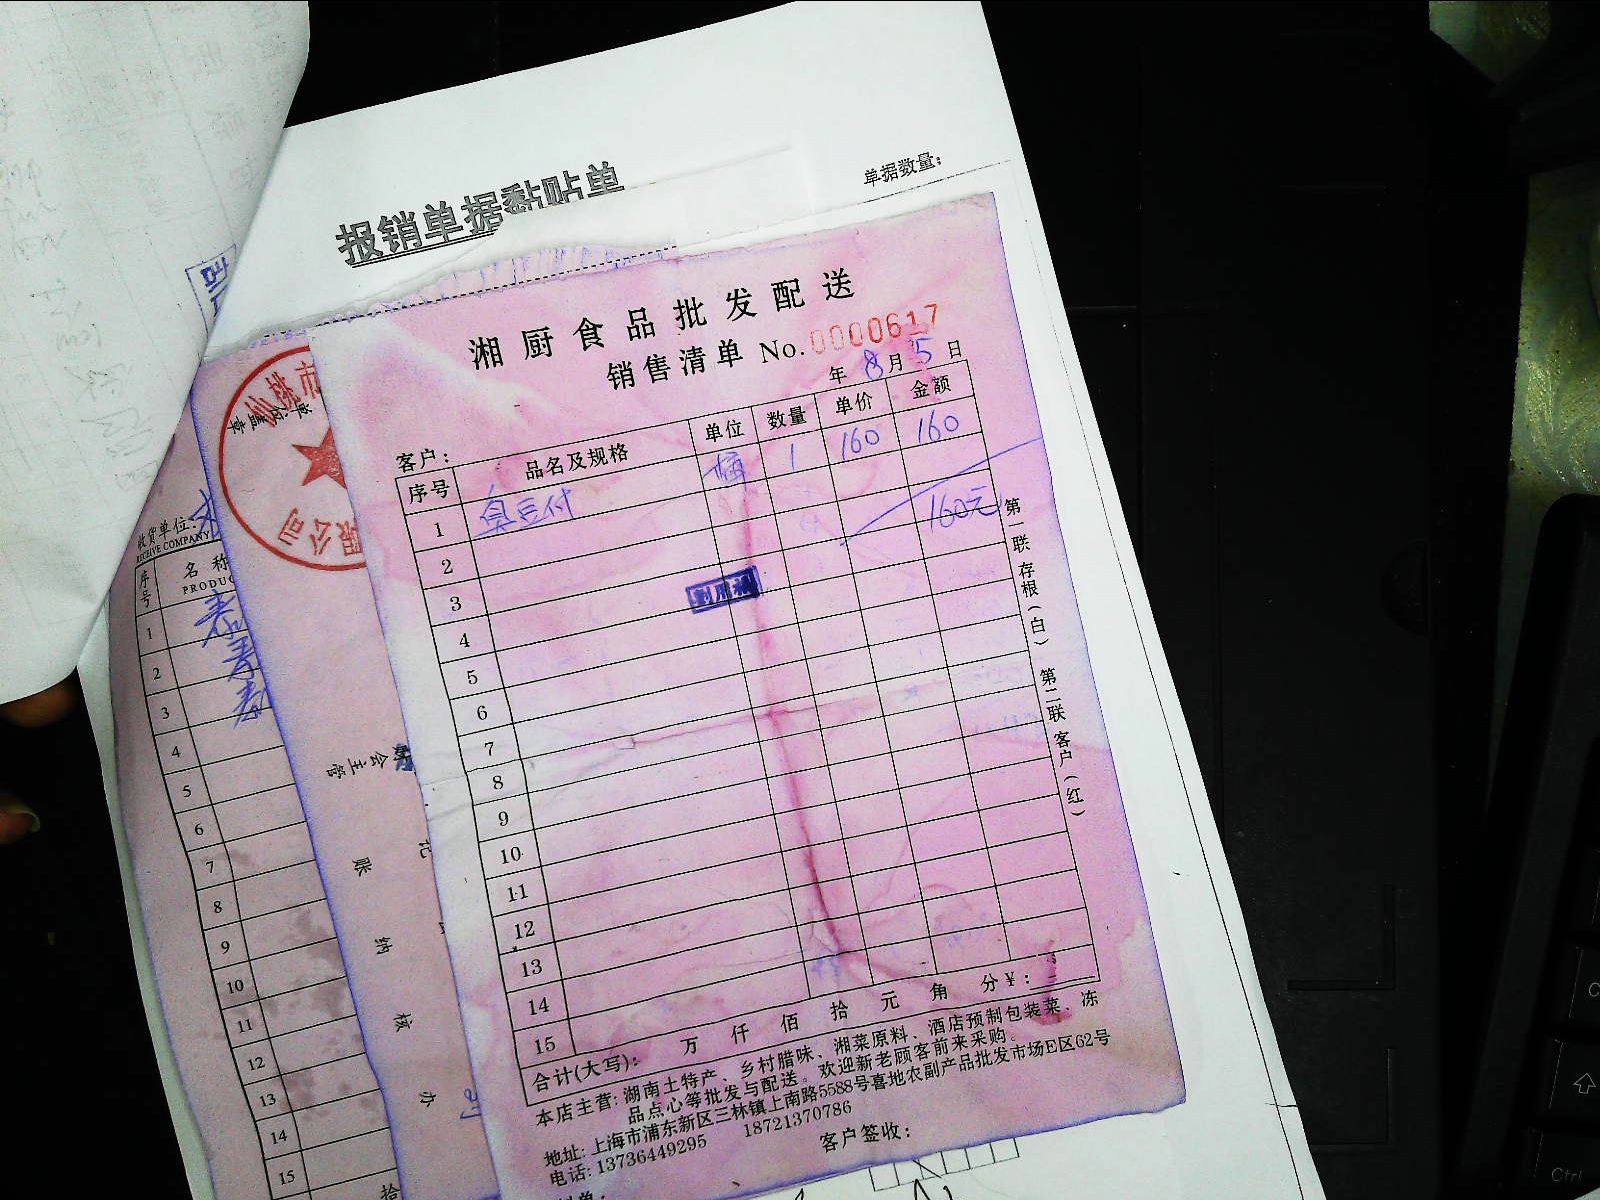 报销单据黏贴单
单据数量:
湘厨食品批发配送
销售清单 No.0000617
年 8月 5日
客户:
序号 品名及规格 单位 数量 单价 金额
1 臭豆付 桶 1 160 160
2
160元
3
4
5
6
7
8
9
10
11
12
13
14
15
合计(大写): 万 仟 佰 拾 元 角 分 ¥:
本店主营: 湖南土特产、乡村腊味、湘菜原料、酒店预制包装菜、冻
品点心等批发与配送。欢迎新老顾客前来采购。
地址: 上海市浦东新区三林镇上南路5588号喜地农副产品批发市场E区62号
电话: 13736449295 18721370786
客户签收:
第一联 存根(白) 第二联 客户(红)
单位盖章
限公司
会主管
账
记
纳
核
办
收货单位:
RECEIVE COMPANY
序号 名称
PRODUC
1
2
3
4
5
6
7
8
9
10
11
12
13
14
15
拾
Ctrl